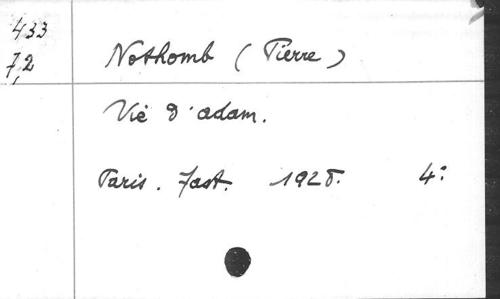 433
7,2
Nothomb (Pierre)
Vie d'adam.
Paris.
4°